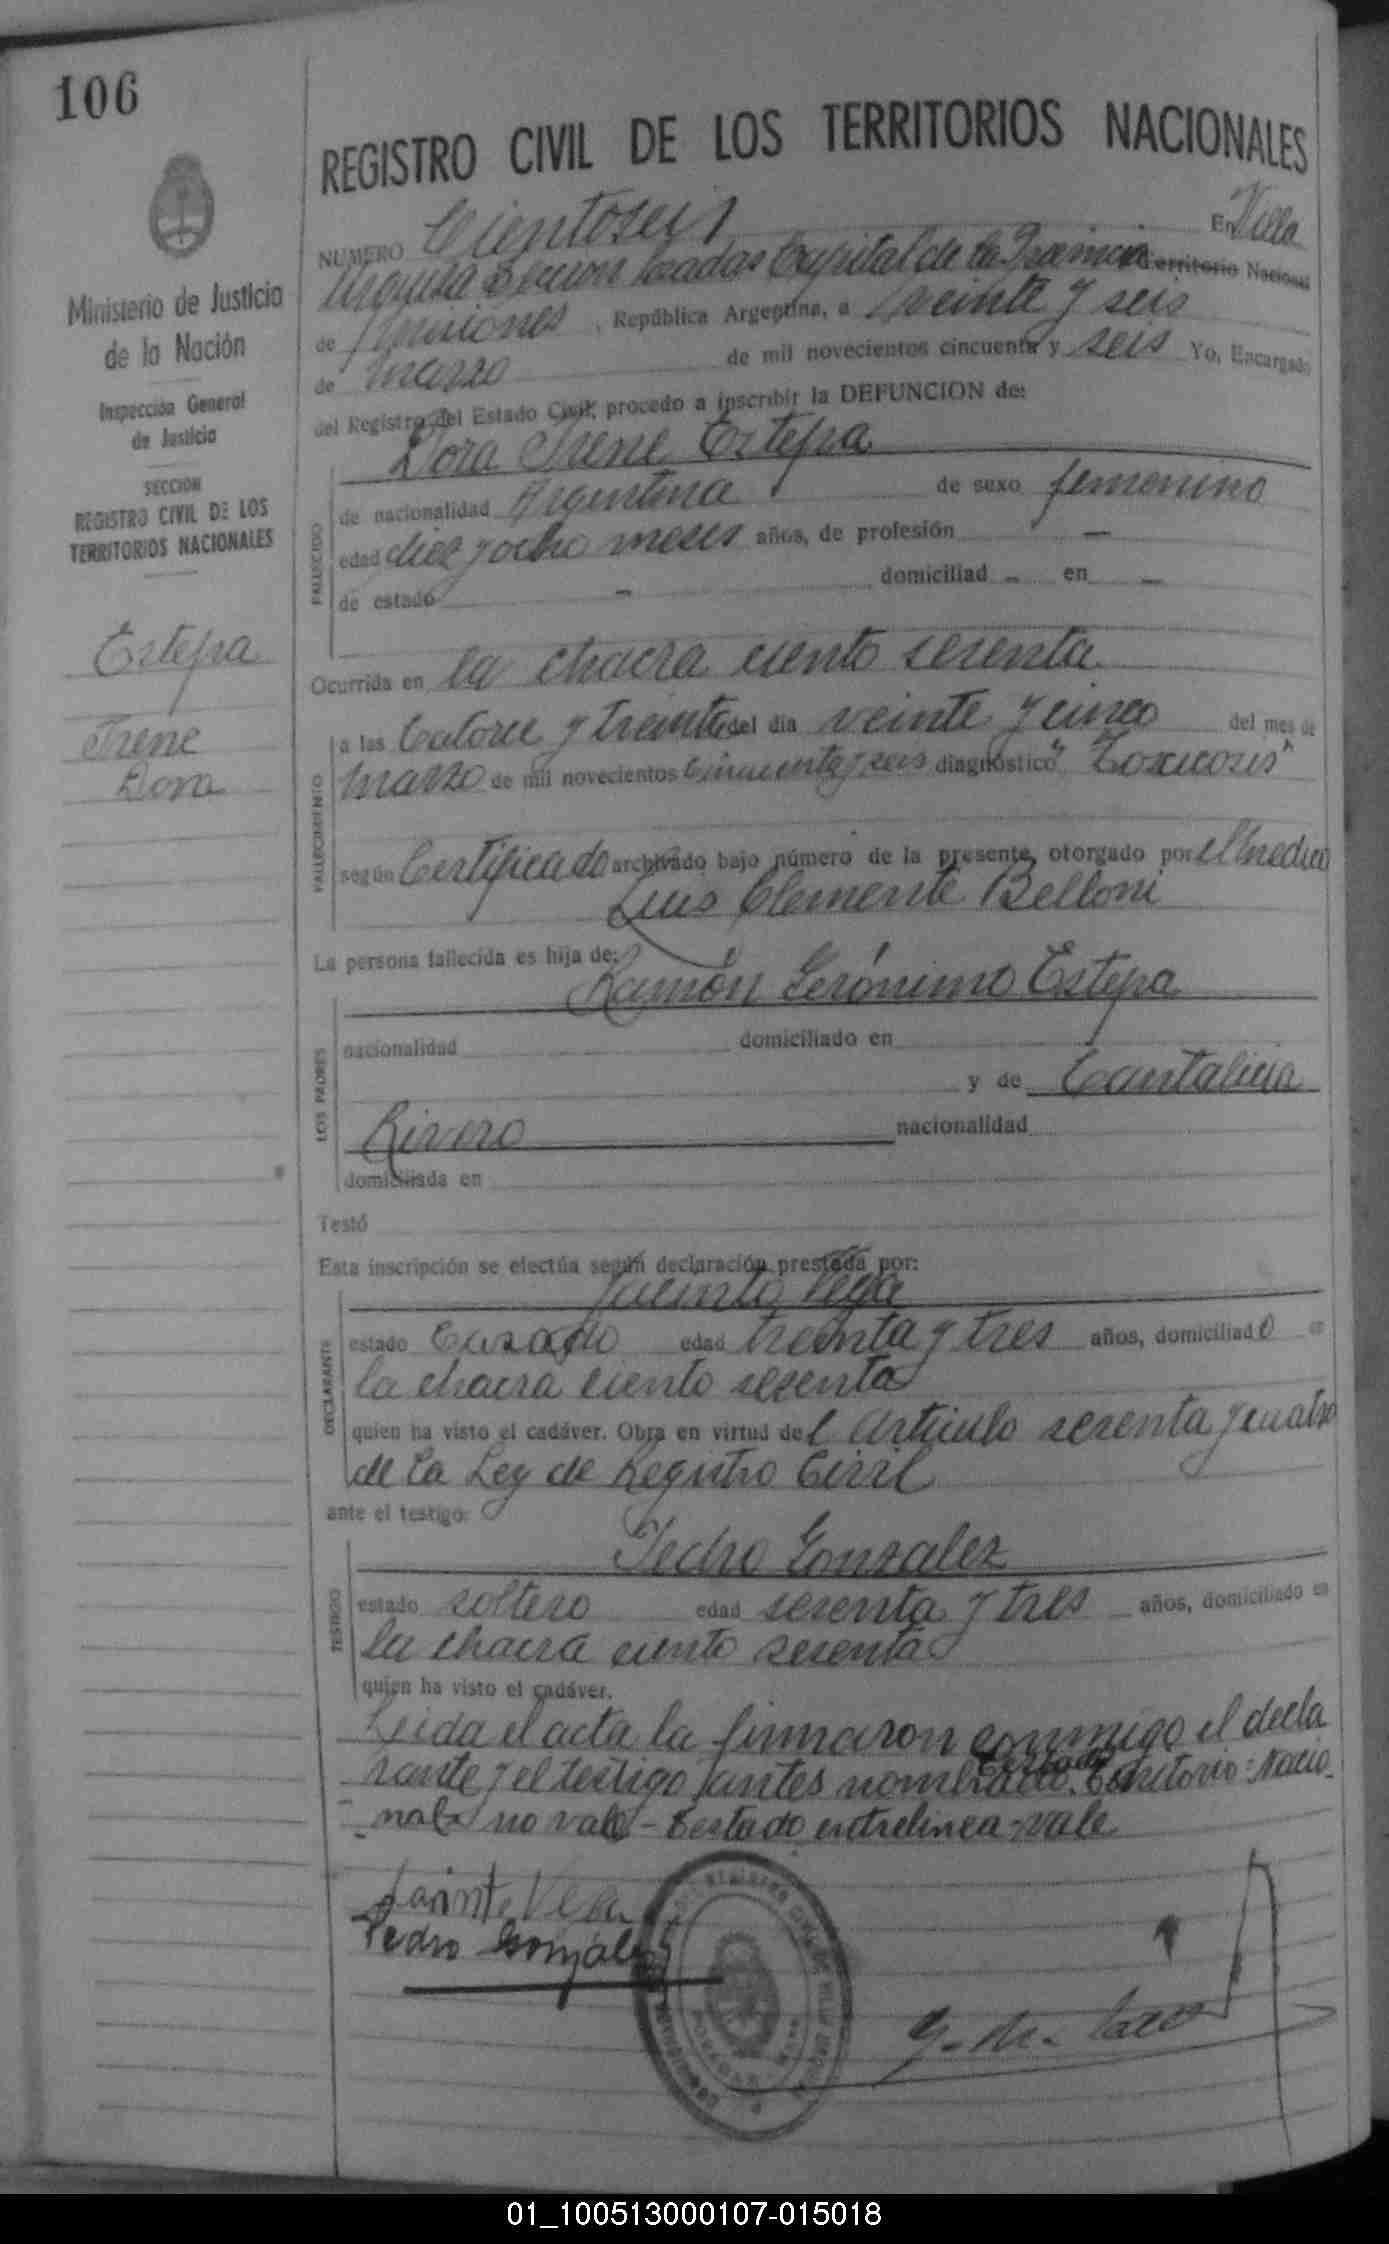 106
REGISTRO CIVIL DE LOS TERRITORIOS NACIONALES
Ministerio de Justicia
de la Nación
Inspección General
de Justicia
SECCION
REGISTRO CIVIL DE LOS
TERRITORIOS NACIONALES
Estepa
Irene
Dora
NUMERO Cientoseis En Villa
Urquiza Capital de la Provincia Territorio Nacional
de Misiones, República Argentina, a veinte y seis
de marzo de mil novecientos cincuenta y seis Yo, Encargado
del Registro del Estado Civil, procedo a inscribir la DEFUNCION de:
Dora Irene Estepa
FALLECIDO
de nacionalidad Argentina de sexo femenino
edad diez y ocho meses años, de profesión —
de estado - domiciliad - en —
Ocurrida en la chacra ciento sesenta
FALLECIMIENTO
a las Catorce y treinta del día veinte y cinco del mes de
marzo de mil novecientos cincuenta y seis diagnóstico "Toxicosis"
según Certificado archivado bajo número de la presente, otorgado por el medico
Luis Clemente Belloni
La persona fallecida es hija de:
Ramón Gerónimo Estepa
LOS PADRES
nacionalidad domiciliado en
y de Cantalicia
Rivero nacionalidad
domiciliada en
Testó
Esta inscripción se efectúa según declaración prestada por:
Jacinto Vega
DECLARANTE
estado Casado edad treinta y tres años, domiciliado en
la chacra ciento sesenta
quien ha visto el cadáver. Obra en virtud del articulo sesenta y cuatro
de la Ley de Registro Civil
ante el testigo:
Pedro Gonzalez
TESTIGO
estado soltero edad sesenta y tres años, domiciliado en
la chacra ciento sesenta
quien ha visto el cadáver.
Leida el acta la firmaron conmigo el decla
rante y el testigo antes nombrado. Testado Territorio-Nacio
nal-no vale-Testado entrelinea-vale
Jacinto Vega
Pedro Gonzalez
01_100513000107-015018